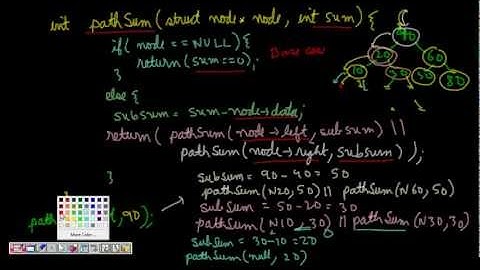 int pathSum( struct node* node, int sum) {
if( node == NULL) {
return (sum==0);
Base case
}
else {
subsum = sum-node→data;
return( pathSum( node→left, subsum) ||
pathSum( node→right, subsum) );
}
subsum = 90-40 = 50
pathSum(N20,50) || pathSum(N60,50)
subSum = 50-20 = 30
pathSum(N10,30) || pathSum(N30,30)
subSum = 30-10 = 20
pathSum(null, 20)
,90);
20
60
10
30
50
80
More Colors...